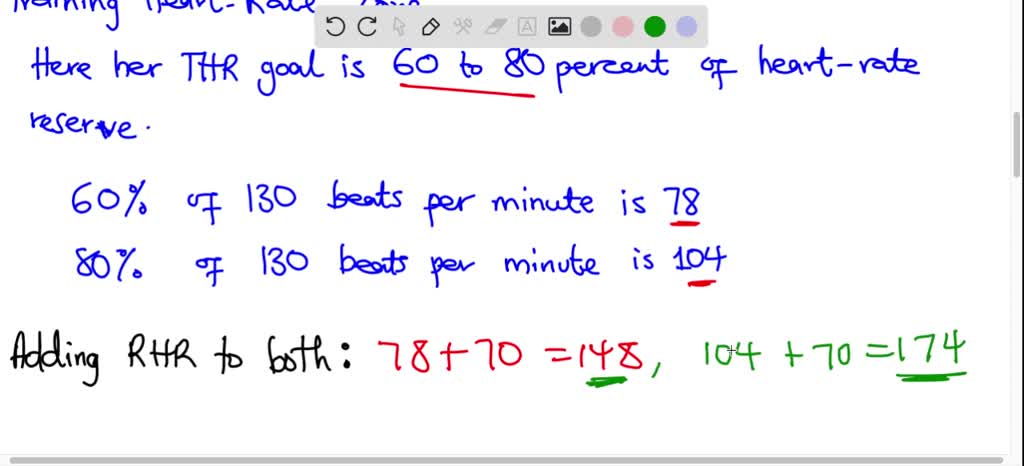 Training Heart-Rate
Here her THR goal is 60 to 80 percent of heart-rate
reserve.
60% of 130 beats per minute is 78
80% of 130 beats per minute is 104
Adding RHR to both: 78+70 =148, 104 +70 =174